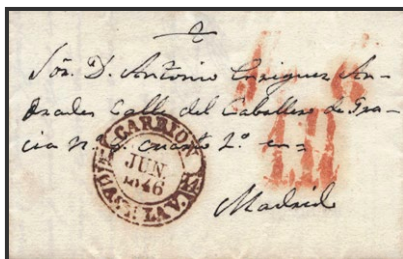 Sor. D. Antonio Enriquez An-
drades Calle del Caballero de Gra-
cia n. cuarto 2º en=
Madrid
CARRION
JUN.
1846